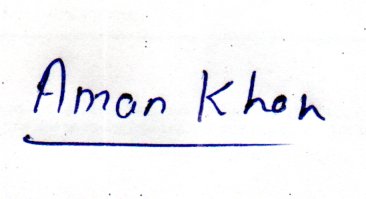 Aman Khan